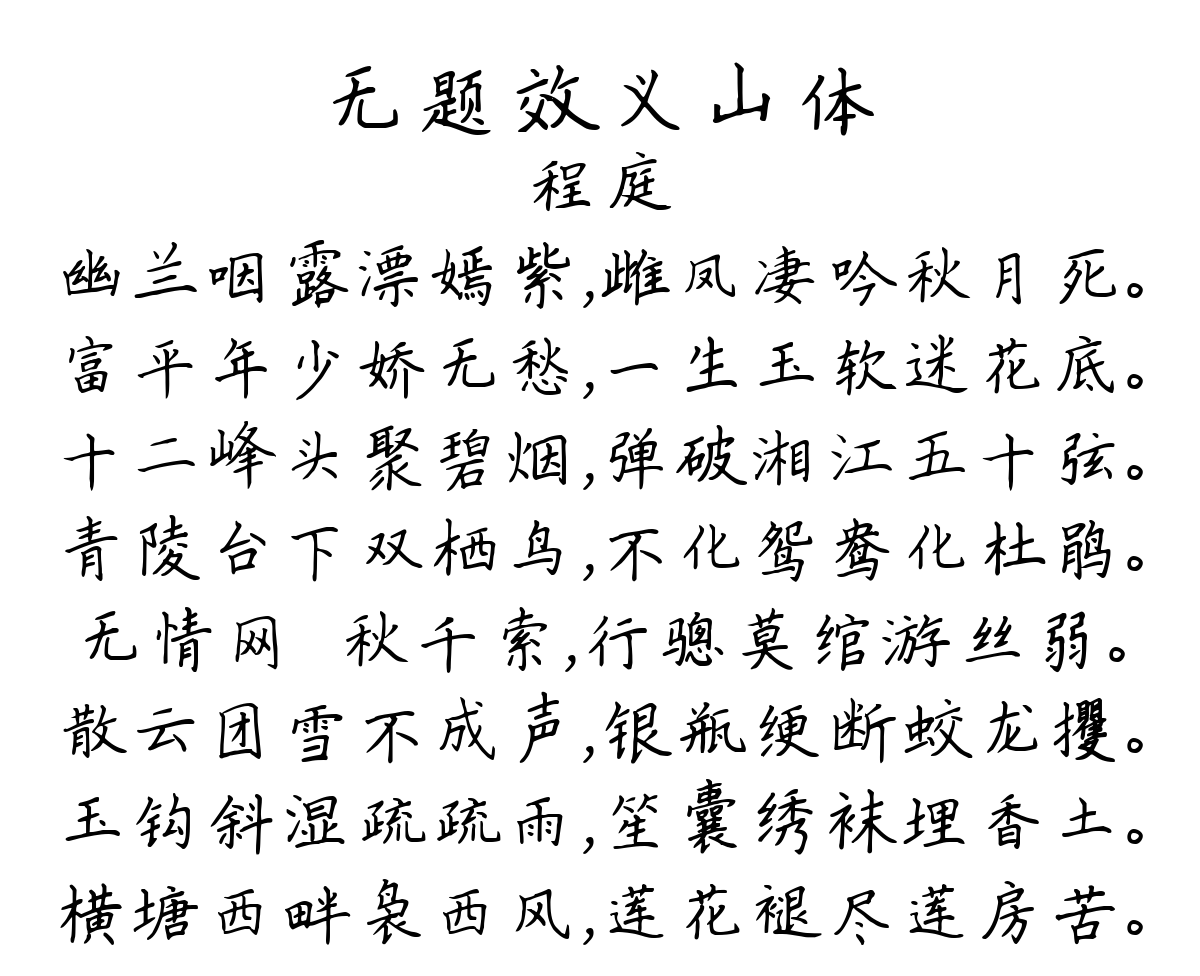 无题效义山体
程庭
幽兰咽露漂嫣紫,雌凤凄吟秋月死。
富平年少娇无愁,一生玉软迷花底。
十二峰头聚碧烟,弹破湘江五十弦。
青陵台下双栖鸟,不化鸳鸯化杜鹃。
无情网 秋千索,行骢莫绾游丝弱。
散云团雪不成声,银瓶绠断蛟龙攫。
玉钩斜湿疏疏雨,笙囊绣袜埋香土。
横塘西畔袅西风,莲花褪尽莲房苦。